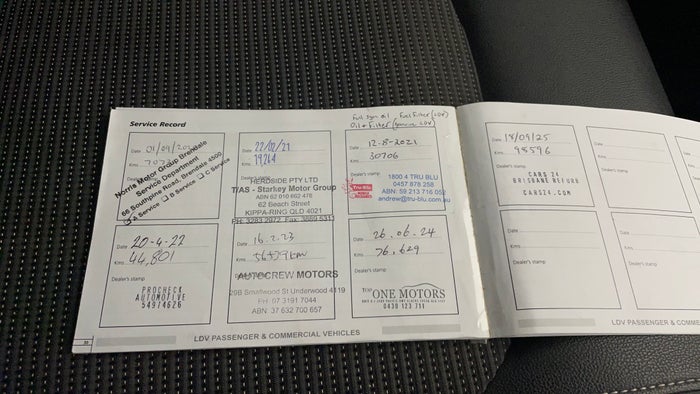 Service Record
Full syn oil Fuel Filter (LDV)
Oil + Filter (genuine LDV)
Date 01/09/20
Kms
Norris Motor Group Brendale
Service Department
66 Southpine Road, Brendale 4500
A Service B Service C Service
Date 22/02/21
Kms 19264
HERDSIDE PTY LTD
T/AS - Starkey Motor Group
ABN 62 010 662 478
62 Beach Street
KIPPA-RING QLD 4021
Date 12-8-2021
Kms 30706
Dealer's stamp
Tru-Blu
1800 4 TRU BLU
0457 878 258
ABN: 59 213 716 052
andrew@tru-blu.com.au
Date 18/09/25
Kms 98596
Dealer's stamp
CARS 24
BRISBANE REFURB
CARS24.COM
Date
Kms
Dealer's stamp
Date 20-4-22
Kms 44,801
Dealer's stamp
PROCHECK
AUTOMOTIVE
54974626
Date 16.2.23
Kms
AUTOCREW MOTORS
29B Smallwood St Underwood 4119
PH: 07 3191 7044
ABN: 37 632 700 657
Date 26.06.24
Kms 76,629
Dealer's stamp
ONE MOTORS
0430 123 711
Date
Kms
Dealer's stamp
LDV PASSENGER & COMMERCIAL VEHICLES
LDV PASSENGER & COMMERCIAL